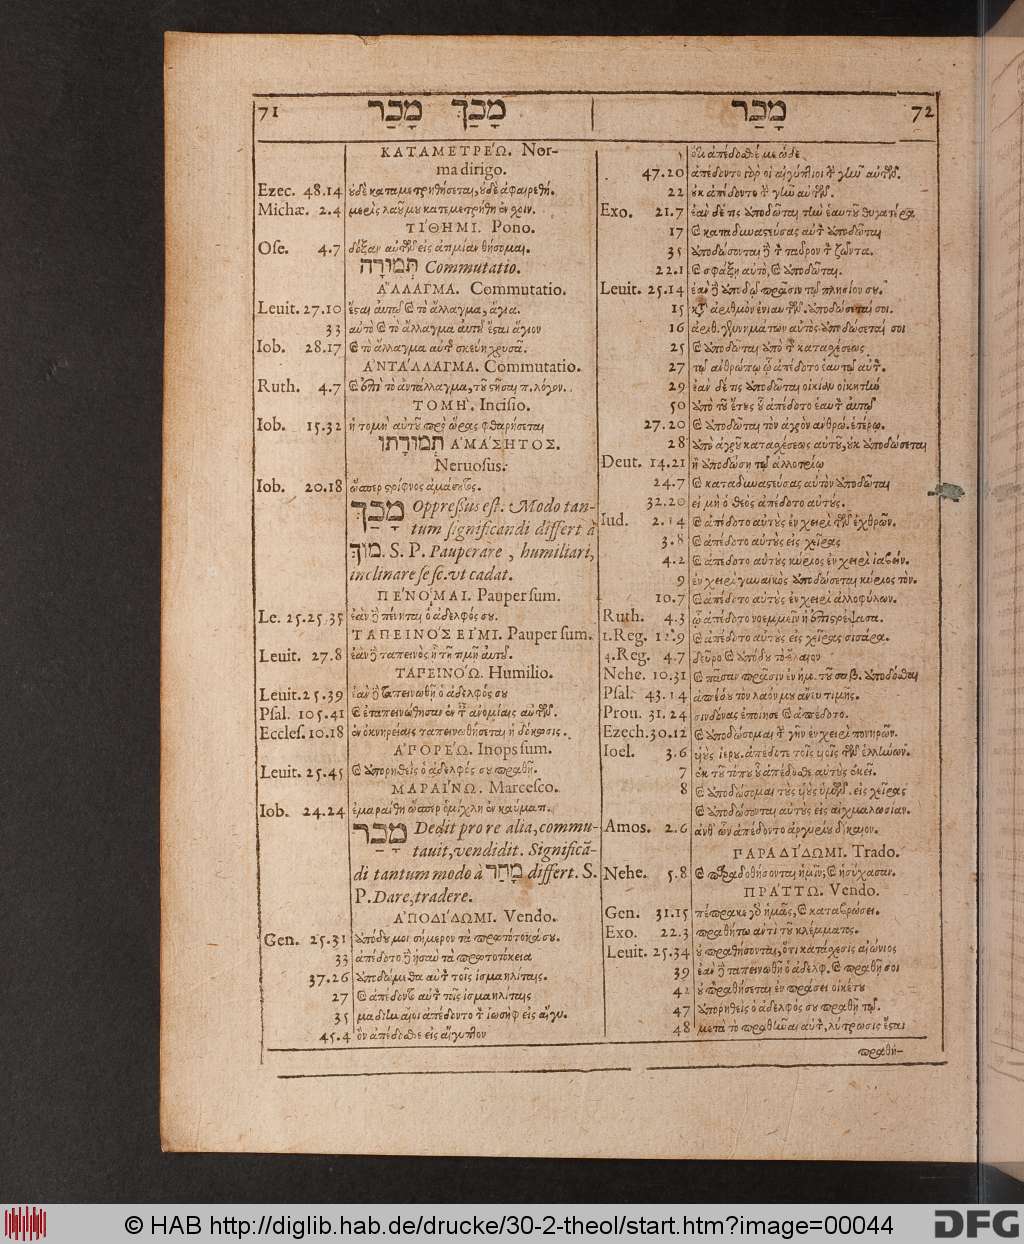 71 מָכַךְ מָכַר
מָכַר 72
ΚΑΤΑΜΕΤΡΕΏ. Nor-
ma dirigo.
Ezec. 48.14 οὐδὲ καταμετρηθήσεται, οὐδὲ ἀφαιρεθή.
Michæ. 2.4 μερὶς λαοῦ μου κατεμετρήθη ἐν
ΤΊΘΗΜΙ. Pono.
Ose. 4.7 δόξαν αὐτῶν εἰς ἀτιμίαν θήσομαι.
תְּמוּרָה Commutatio.
ἌΛΛΑΓΜΑ. Commutatio.
Leuit. 27.10 ἔσται αὐτὸ καὶ τὸ ἄλλαγμα, ἅγια.
33 αὐτὸ καὶ τὸ ἄλλαγμα αὐτοῦ ἔσται ἅγιον
Iob. 28.17 καὶ τὸ ἄλλαγμα αὐτῆς σκεύη χρυσᾶ.
ἈΝΤΆΛΛΑΓΜΑ. Commutatio.
Ruth. 4.7 καὶ ἐπὶ τὸ ἀντάλλαγμα, τοῦ στῆσαι π. λόγον.
ΤΟΜΉ. Incisio.
Iob. 15.32 ἡ τομὴ αὐτοῦ πρὸ ὥρας φθαρήσεται
תְּמוּרָתוֹ ἈΜΆΣΗΤΟΣ.
Neruosus.
Iob. 20.18 ὥσπερ στρίφνος ἀμάσητος.
מָכַךְ Oppressus est. Modo tan-
tum significandi differt à
מוּךְ. S. P. Pauperare, humiliari,
inclinare se sc. vt cadat.
ΠΈΝΟΜΑΙ. Pauper sum.
Le. 25.25.35 ἐὰν δὲ πένηται ὁ ἀδελφός σου.
ΤΑΠΕΙΝΌΣ ΕἸΜΙ. Pauper sum.
Leuit. 27.8 ἐὰν δὲ ταπεινὸς ᾖ τῇ τιμῇ αὐτοῦ.
ΤΑΠΕΙΝΌΩ. Humilio.
Leuit. 25.39 ἐὰν δὲ ταπεινωθῇ ὁ ἀδελφός σου
Psal. 105.41 καὶ ἐταπεινώθησαν ἐν ταῖς ἀνομίαις αὐτῶν.
Eccles. 10.18 ἐν ὀκνηρείαις ταπεινωθήσεται ἡ δόκωσις.
ἈΠΟΡΈΩ. Inops sum.
Leuit. 25.45 καὶ ἀπορηθεὶς ὁ ἀδελφός σου πραθῇ.
ΜΑΡΑΊΝΩ. Marcesco.
Iob. 24.24 ἐμαράνθη ὥσπερ ὁμίχλη ἐν καύματι.
מָכַר Dedit pro re alia, commu-
tauit, vendidit. Significā-
di tantum modo à מָחַר differt. S.
P. Dare, tradere.
ἈΠΟΔΊΔΩΜΙ. Vendo.
Gen. 25.31 ἀπόδου μοι σήμερον τὰ πρωτοτόκιά σου.
33 ἀπέδοτο δὲ ἠσαῦ τὰ πρωτοτόκεια
37.26 ἀποδώμεθα αὐτὸν τοῖς ἰσμαηλίταις.
27 καὶ ἀπέδοντο αὐτὸν τοῖς ἰσμαηλίταις
35 μαδιηναῖοι ἀπέδοντο τὸν ἰωσὴφ εἰς αἴγυ.
45.4 ὃν ἀπέδοσθε εἰς αἴγυπτον
ὅτι ἀπέδοσθέ με ὧδε
47.20 ἀπέδοντο γὰρ οἱ αἰγύπτιοι τὴν γῆν αὐτῶν.
22 οὐκ ἀπέδοντο τὴν γῆν αὐτῶν.
Exo. 21.7 ἐὰν δέ τις ἀποδῶται τὴν ἑαυτοῦ θυγατέρα
17 καὶ καταδυναστεύσας αὐτὸν ἀποδῶται
35 ἀποδώσονται δὲ τὸν ταῦρον τὸν ζῶντα.
22.1 καὶ σφάξῃ αὐτὸ, καὶ ἀποδῶται.
Leuit. 25.14 ἐὰν δὲ ἀποδῷ πρᾶσιν τῷ πλησίον σου
15 κατὰ ἀριθμὸν ἐνιαυτῶν. ἀποδώσεταί σοι.
16 ἀριθ. γεννημάτων αὐτὸς ἀποδώσεταί σοι
25 καὶ ἀποδῶται ἀπὸ τῆς κατασχέσεως
27 τῷ ἀνθρώπῳ ᾧ ἀπέδοτο ἑαυτῷ αὐτ.
29 ἐὰν δέ τις ἀποδῶται οἰκίαν οἰκητὴν
50 ἀπὸ τοῦ ἔτους οὗ ἀπέδοτο ἑαυτὸν αὐτῷ
27.20 καὶ ἀποδῶται τὸν ἀγρὸν ἀνθρώ. ἑτέρῳ.
28 ἀπὸ ἀγροῦ κατασχέσεως αὐτοῦ, οὐκ ἀποδώσεται
Deut. 14.21 ἢ ἀποδώσῃ τῷ ἀλλοτρίῳ
24.7 καὶ καταδυναστεύσας αὐτὸν ἀποδῶται
32.20 εἰ μὴ ὁ θεὸς ἀπέδοτο αὐτούς.
Iud. 2.14 καὶ ἀπέδοτο αὐτοὺς ἐν χειρὶ τῶν ἐχθρῶν.
3.8 καὶ ἀπέδοτο αὐτοὺς εἰς χεῖρας
4.2 καὶ ἀπέδοτο αὐτοὺς κύριος ἐν χειρὶ ἰαβείν.
9 ἐν χειρὶ γυναικὸς ἀποδώσεται κύριος τὸν.
10.7 καὶ ἀπέδοτο αὐτοὺς ἐν χειρὶ ἀλλοφύλων.
Ruth. 4.3 ὃ ἀπέδοτο νοεμμεὶν ἡ ἐπιστρέψασα.
1.Reg. 12.9 καὶ ἀπέδοτο αὐτοὺς εἰς χεῖρας σισάρα.
4.Reg. 4.7 δεῦρο καὶ ἀπόδου τὸ ἔλαιον
Nehe. 10.31 καὶ πᾶσαν πρᾶσιν ἐν ἡμ. τοῦ σαββ. ἀποδόσθαι
Psal. 43.14 ἀπέδου τὸν λαόν μου ἄνευ τιμῆς.
Prou. 31.24 σινδόνας ἐποίησε καὶ ἀπέδοτο.
Ezech. 30.12 καὶ ἀποδώσομαι τὴν γῆν ἐν χειρὶ πονηρῶν.
Ioel. 3.6 υἱοὺς ἱερου. ἀπέδοτε τοῖς υἱοῖς τῶν ἑλλήνων.
7 ἐκ τοῦ τόπου οὗ ἀπέδοσθε αὐτοὺς ἐκεῖ.
8 καὶ ἀποδώσομαι τοὺς υἱοὺς ὑμῶν. εἰς χεῖρας
καὶ ἀποδώσονται αὐτοὺς εἰς αἰχμαλωσίαν.
Amos. 2.6 ἀνθ' ὧν ἀπέδοντο ἀργυρίου δίκαιον.
ΠΑΡΑΔΊΔΩΜΙ. Trado.
Nehe. 5.8 καὶ παραδοθήσονται ἡμῖν; καὶ ἡσύχασαν.
ΠΡΆΤΤΩ. Vendo.
Gen. 31.15 πέπρακε γὰρ ἡμᾶς, καὶ κατέβρωσε.
Exo. 22.3 πραθήτω ἀντὶ τοῦ κλέμματος.
Leuit. 25.34 οὐ πραθήσονται, ὅτι κατάσχεσις αἰώνιος
39 ἐὰν δὲ ταπεινωθῇ ὁ ἀδελφ. καὶ πραθῇ σοι
42 οὐ πραθήσεται ἐν πράσει οἰκέτου
47 ἀπορηθεὶς ὁ ἀδελφός σου πραθῇ τῷ.
48 μετὰ τὸ πραθῆναι αὐτὸν, λύτρωσις ἔσται
πραθή-
© HAB http://diglib.hab.de/drucke/30-2-theol/start.htm?image=00044
DFG